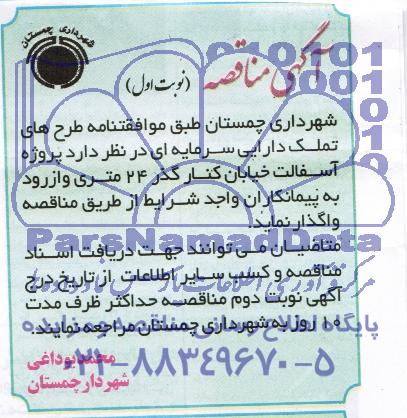 شهرداری چمستان
آگهی مناقصه
(نوبت اول)
شهرداری چمستان طبق موافقتنامه طرح های
تملک دارایی سرمایه ای در نظر دارد پروژه
آسفالت خیابان کنار گذر ۲۴ متری وازرود
به پیمانکاران واجد شرایط از طریق مناقصه
واگذار نماید.
ParsNamadData
متقاضیان می توانند جهت دریافت اسناد
مناقصه و کسب سایر اطلاعات از تاریخ درج
آگهی نوبت دوم مناقصه حداکثر ظرف مدت
۱۰ روز به شهرداری چمستان مراجعه نمایند.
۰۲۱-۸۸۳۴۹۶۷۰-۵
محمد بوداغی
شهردار چمستان